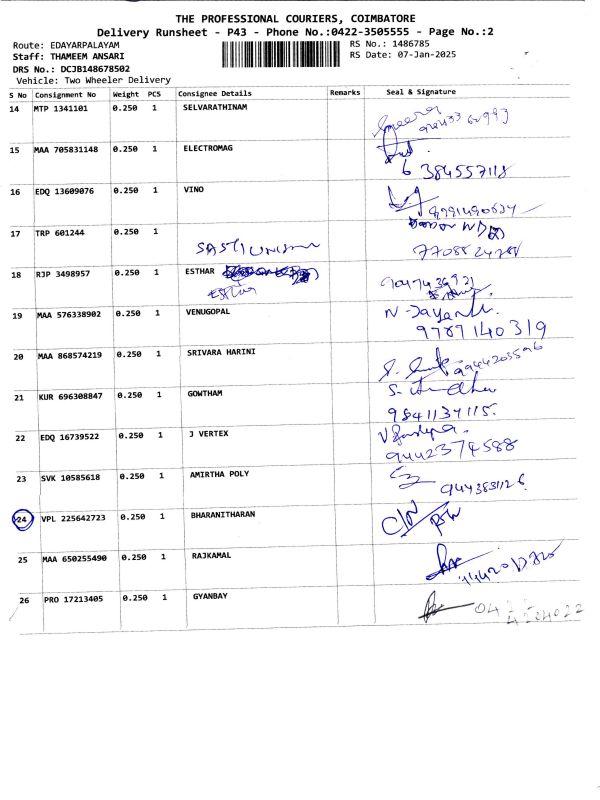 THE PROFESSIONAL COURIERS, COIMBATORE
Delivery Runsheet - P43 - Phone No.:0422-3505555 - Page No.:2
Route: EDAYARPALAYAM RS No.: 1486785
Staff: THAMEEM ANSARI RS Date: 07-Jan-2025
DRS No.: DCJB148678502
Vehicle: Two Wheeler Delivery
S No Consignment No Weight PCS Consignee Details Remarks Seal & Signature
14 MTP 1341101 0.250 1 SELVARATHINAM
15 MAA 705831148 0.250 1 ELECTROMAG
6 384557118
16 EDQ 13609076 0.250 1 VINO
17 TRP 601244 0.250 1
18 RJP 3498957 0.250 1 ESTHAR
19 MAA 576338902 0.250 1 VENUGOPAL N-Jayanthi
9789140319
20 MAA 868574219 0.250 1 SRIVARA HARINI
21 KUR 696308847 0.250 1 GOWTHAM
9841134115.
22 EDQ 16739522 0.250 1 J VERTEX
9442374588
23 SVK 10585618 0.250 1 AMIRTHA POLY
9443831126
24 VPL 225642723 0.250 1 BHARANITHARAN
25 MAA 650255490 0.250 1 RAJKAMAL
26 PRO 17213405 0.250 1 GYANBAY